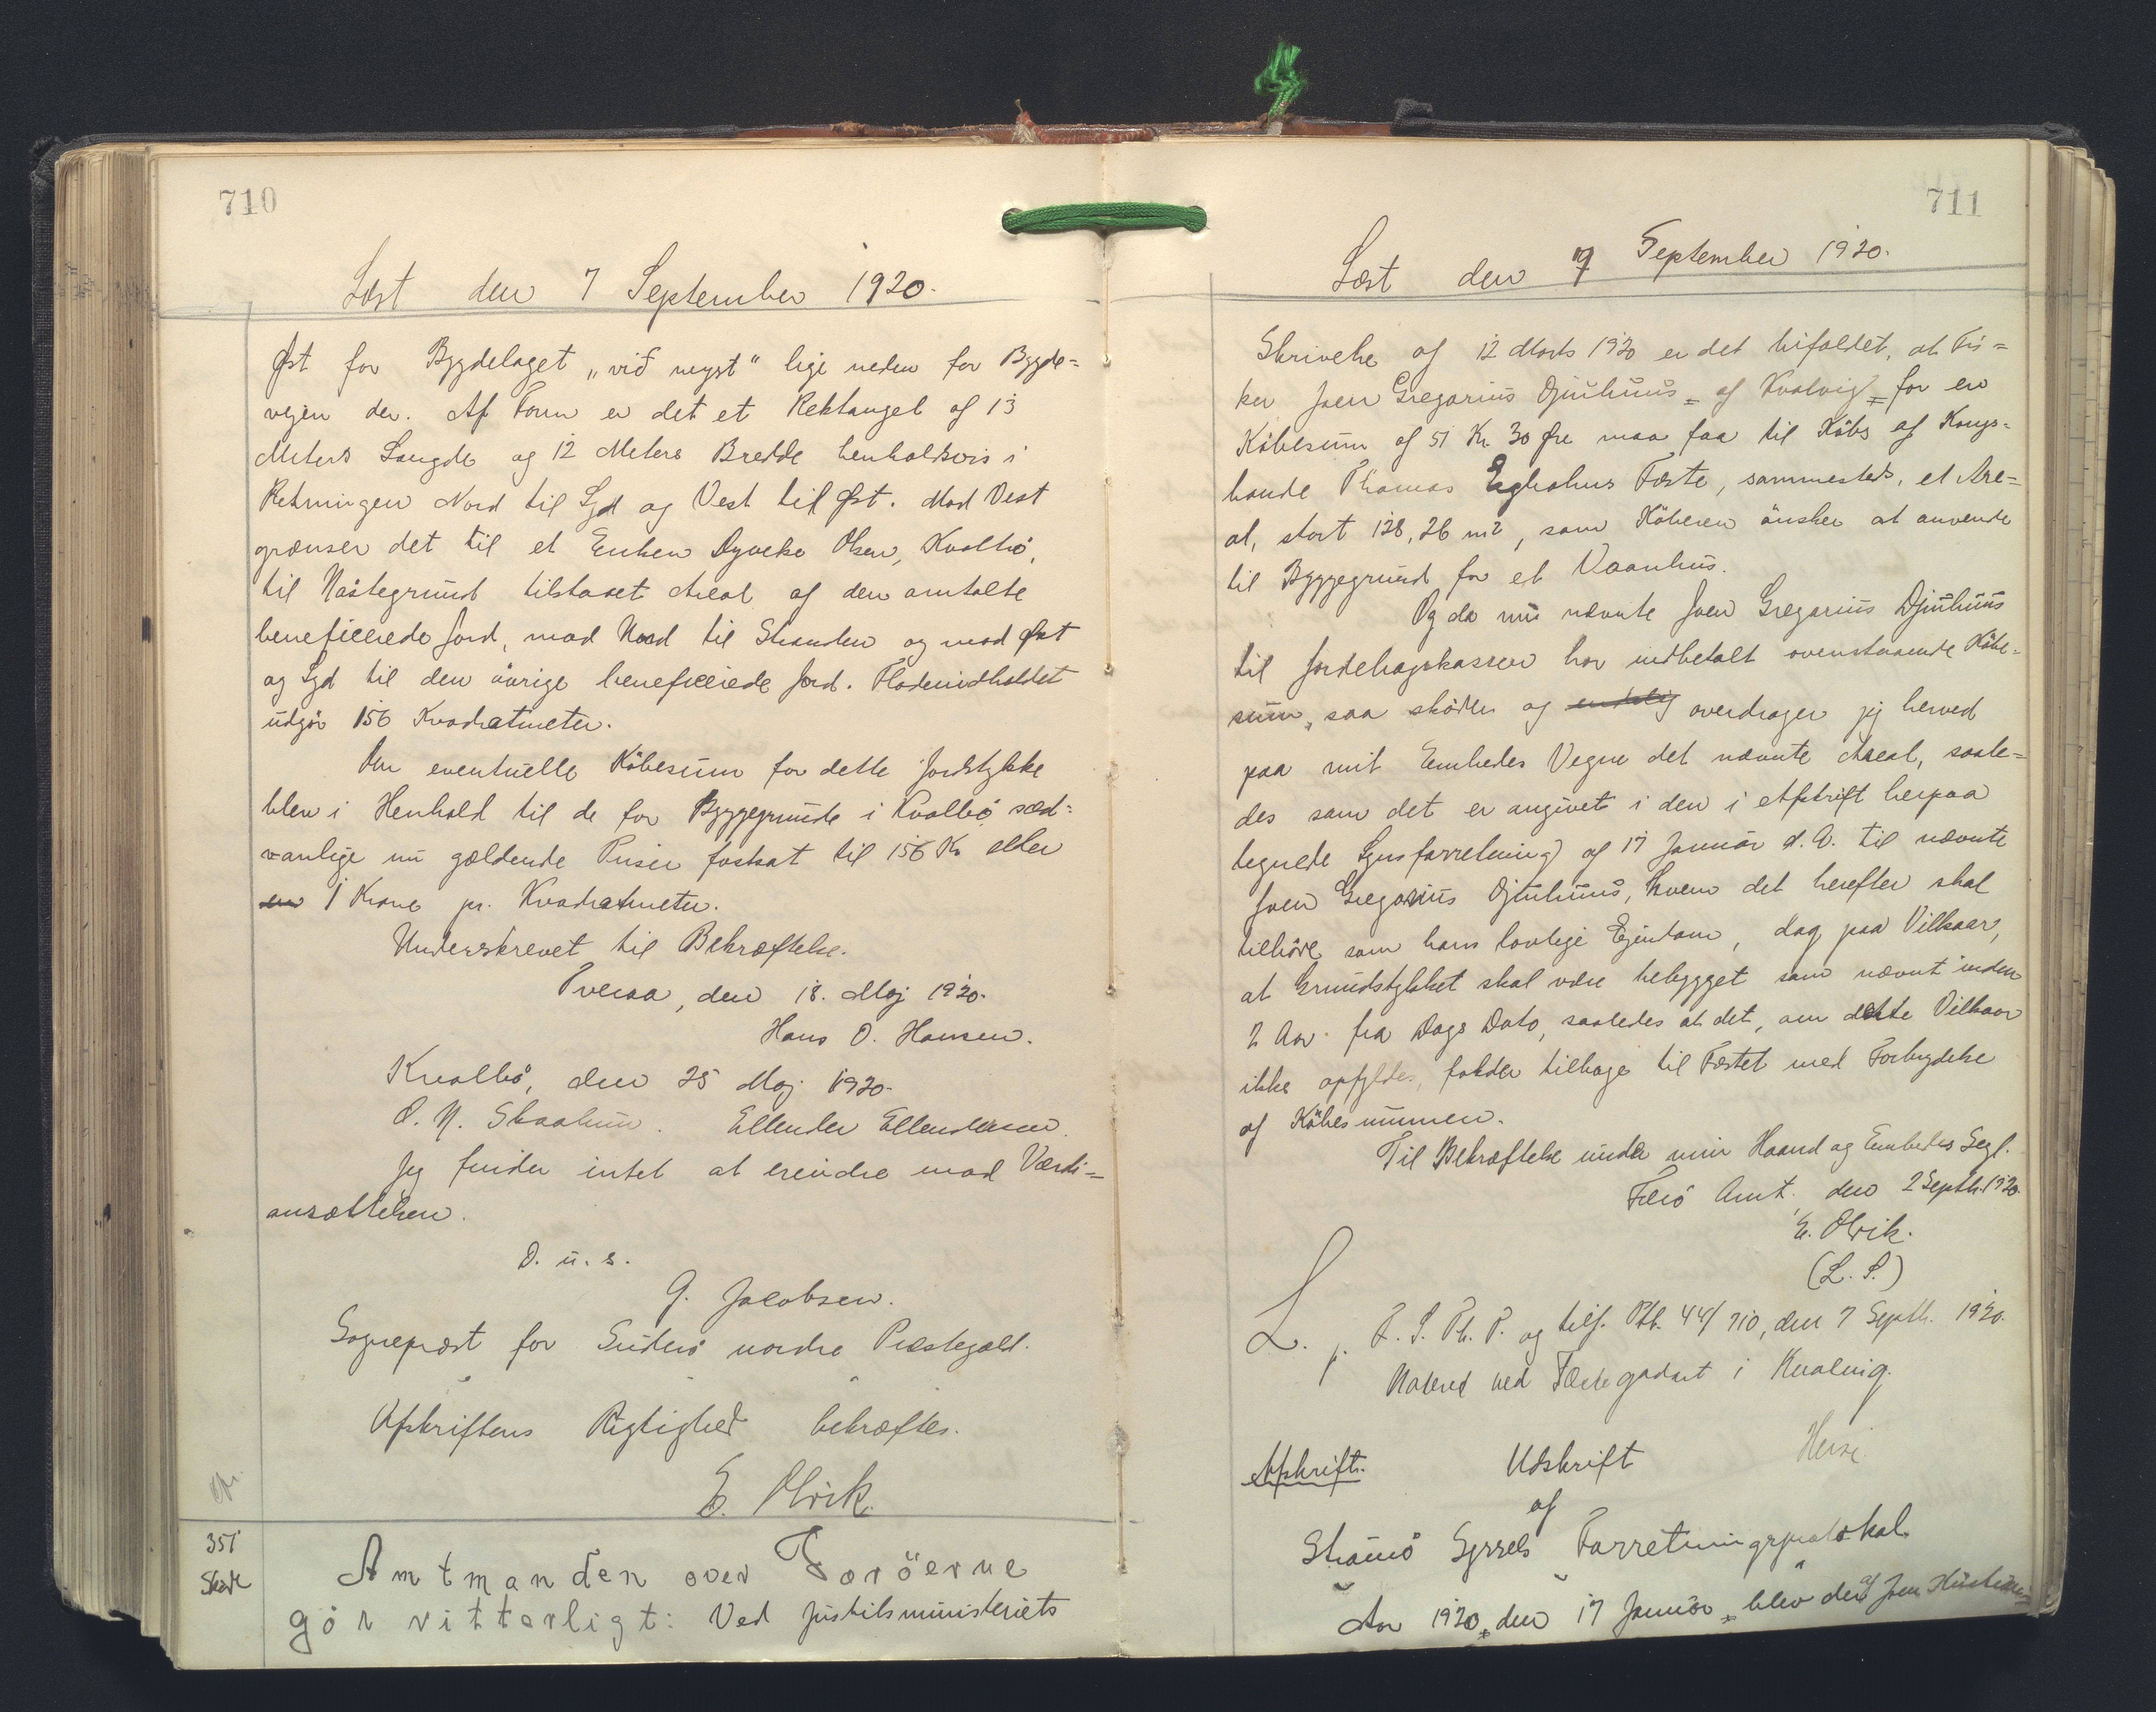 710
Læst den 7 September 1920.
Øst for Bygdelaget „við neyst“ lige neden for Bygde=
vejen der. Af Form er det et Rektangel af 13
Meters Længde og 12 Meters Bredde henholdsvis i
Retningen Nord til Syd og Vest til Øst. Mod Vest
grænser det til et Enken Dyveke Olsen, Kvalbö,
til Nöstegrund tilstaaet Areal af den omtalte
beneficerede Jord, mod Nord til Stranden og mod Øst
og Syd til den övrige beneficerede Jord. Fladeindholdet
udgör 156 Kvadratmeter.
Den eventuelle Köbesum for dette Jordstykke
blev i Henhold til de for Byggegrunde i Kvalbö sæd=
vanlige nu gældende Priser fastsat til 156 Kr eller
en 1 Krone pr. Kvadratmeter.
Underskrevet til Bekræftelse.
Tveraa, den 18. Maj 1920.
Hans O. Hansen.
Kvalbö, den 25 Maj 1920.
O. N. Skaalum. Ellender Ellendersen.
Jeg finder intet at erindre mod Værdi=
ansættelsen.
D. u. s.
G. Jacobsen.
Sognepræst for Suderö nordre Præstegæld.
Afskriftens Rigtighed bekræftes.
E. Olrik.
351
Sköde
Amtmanden over Færöerne
gör vitterligt: Ved Justitsministeriets
711
Læst den 7 September 1920.
Skrivelse af 12 Marts 1920 er det bifaldet, at Fis=
ker Joen Gregorius Djurhuus = af Kvalvig = for en
Köbesum af 51 Kr. 30 Øre maa faa til Köbs af Kongs=
bonde Thomas Egholms Fæste, sammesteds, et Are=
al, stort 128,26 m2, som Köberen önsker at anvende
til Byggegrund for et Vaanhus.
Og da nu nævnte Joen Gregorius Djurhuus
til Jordebogskassen har indbetalt ovenstaaende Köbe=
sum, saa sköder og endelig overdrager jeg herved
paa mit Embedes Vegne det nævnte Areal, saale=
des som det er angivet i den i Afskrift herpaa
tegnede Synsforretning af 17 Januar d. A. til nævnte
Joen Gregorius Djurhuus, hvem det herefter skal
tilhöre som hans lovlige Ejendom, dog paa Vilkaar,
at Grundstykket skal være bebygget som nævnt inden
2 Aar fra Dags Dato, saaledes at det, om dette Vilkaar
ikke opfyldes, falder tilbage til Fæstet med Forbrydelse
af Köbesummen.
Til Bekræftelse under min Haand og Embedes Segl.
Færö Amt, den 2 Septb. 1920.
E. Olrik.
(L. S.)
L. p. F. S. Th. P. og tilf. Ptk. 44/710, den 7 Septb. 1920.
Noteret ved Fæstegodset i Kvalvig.
Afskrift. Udskrift
af
Strömö Syssels Forretningsprotokol.
Aar 1920, den 17 Januar = blev den af Joen